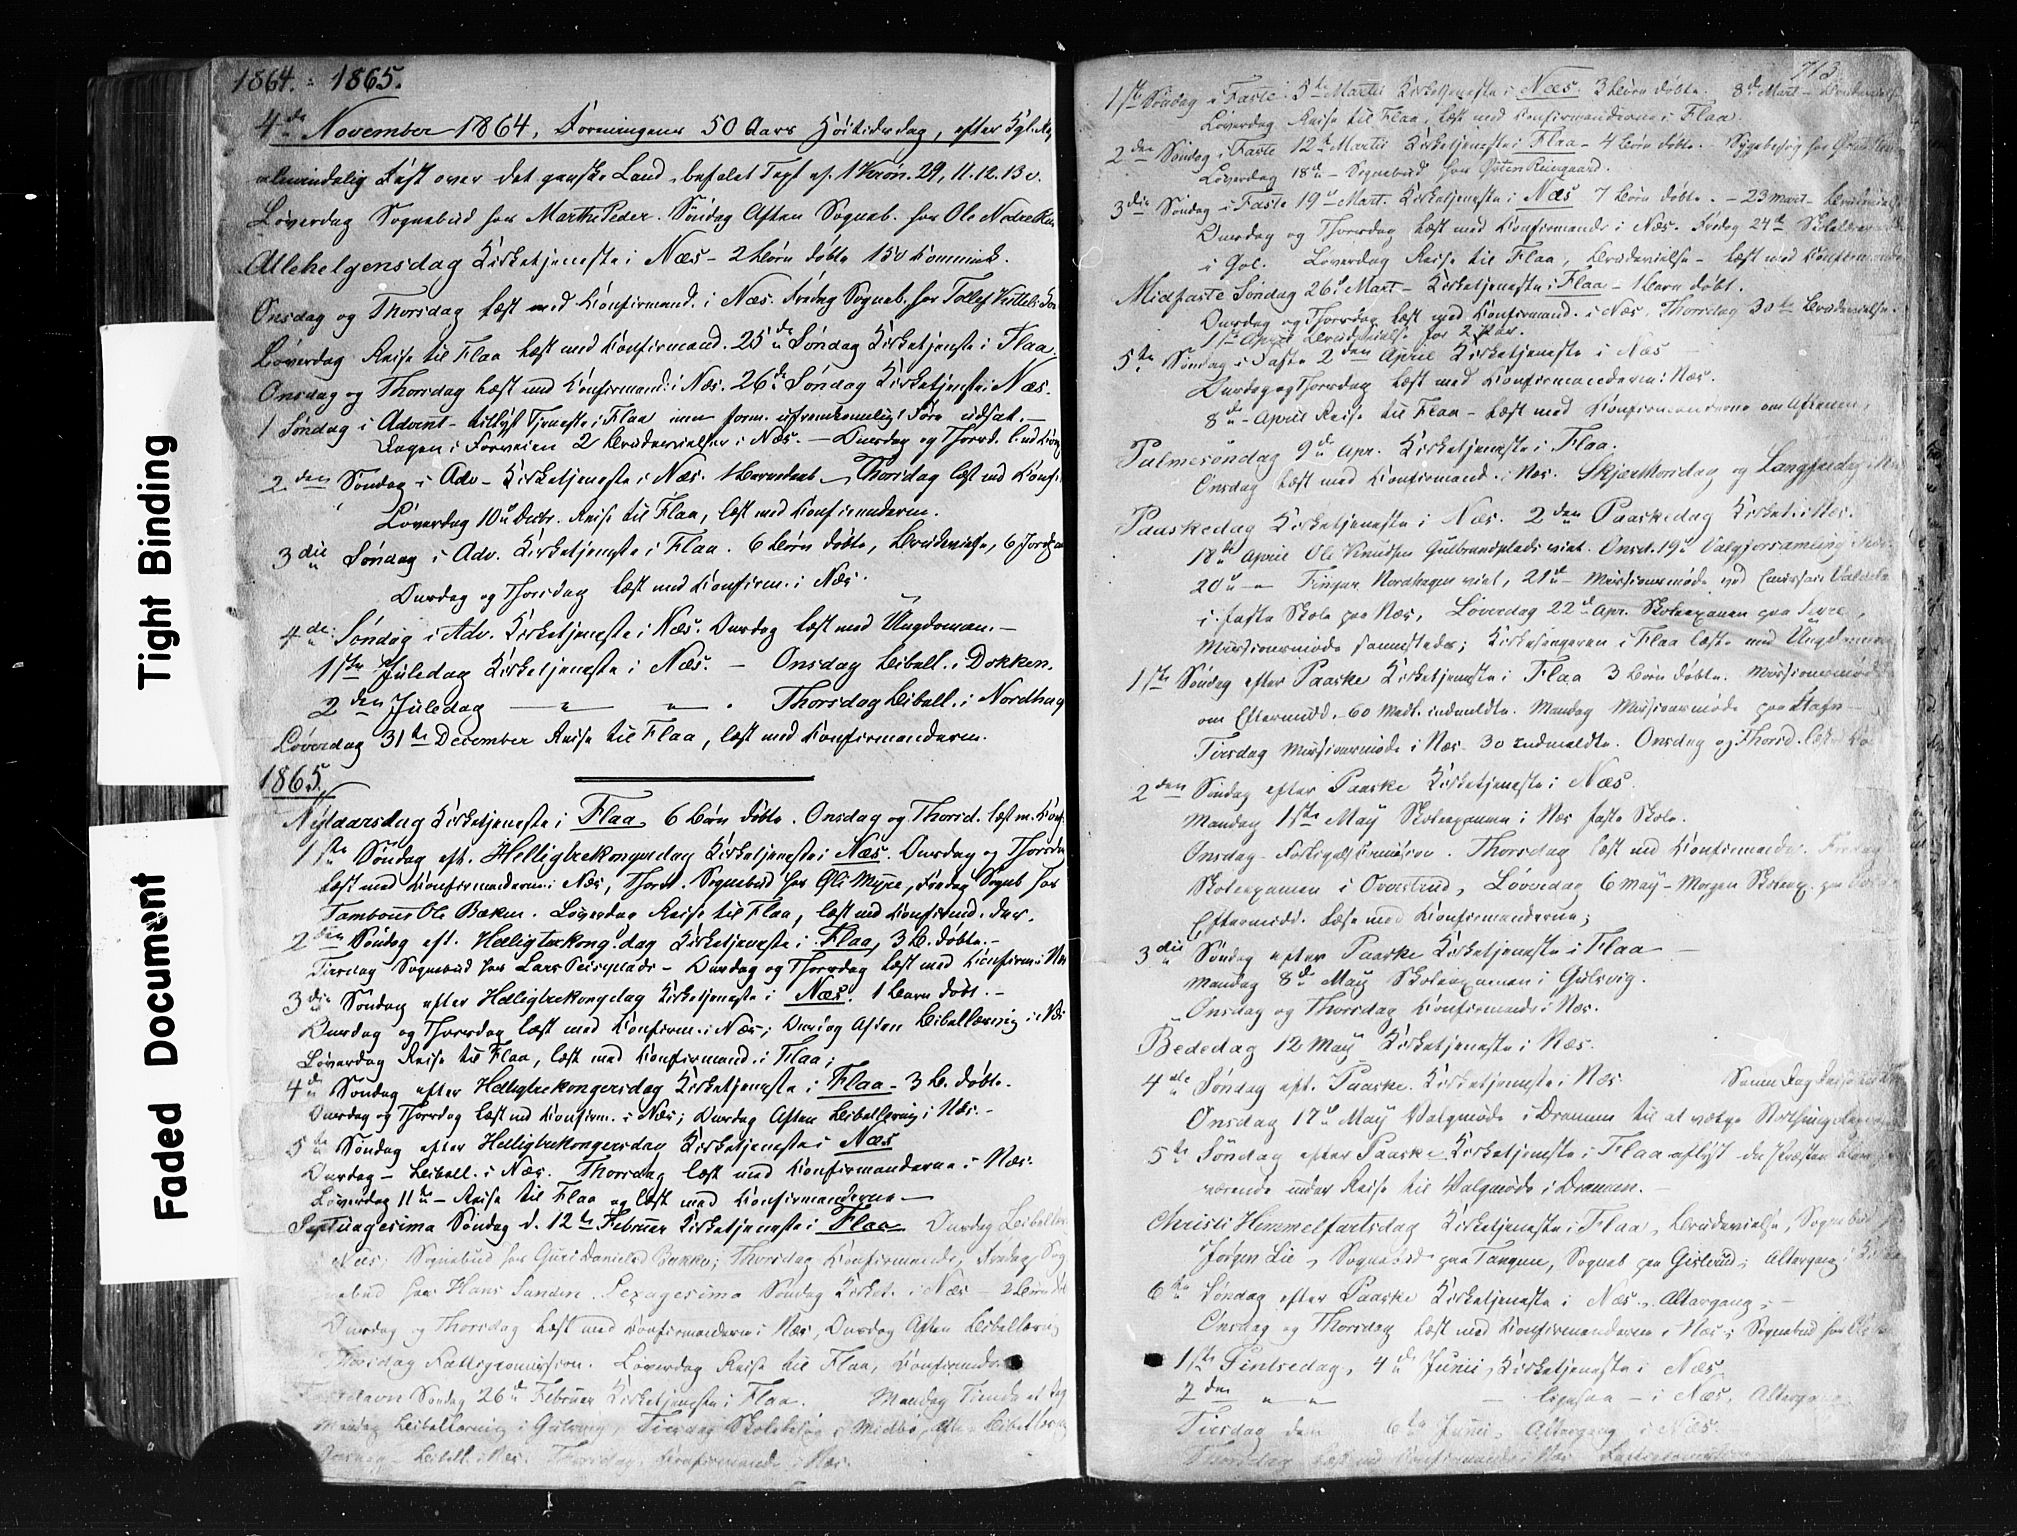 1864. - 1865.
4de November 1864, Foreningens 50 Aars Høitidsdag, efter Kgl.
almindelig Fest over det ganske Land, befalet Text af 1 Krøn. 29, 11. 12. 13 v.
Løverdag Sognebud hos Marthe Peder. Søndag Aften Sogneb. hos Ole
Allehelgensdag Kirketjeneste i Næs - 2 Børn døbte 150 Kommunik.
Onsdag og Thorsdag læst med Konfirmand. i Næs. Fredag Sogneb. hos Tollef
Løverdag Reise til Flaa læst med Konfirmand. 25de Søndag Kirketjeneste i Flaa.
Onsdag og Thorsdag læst med Konfirmand. i Næs. 26de Søndag Kirketjeneste i Næs.
1 Søndag i Advent - tillyst Tjeneste i Flaa men form. ufremkommeligt Føre udsat. -
Dagen i Forveien 2 Brudevielser i Næs. - Onsdag og Thorsd. l. med
2den Søndag i Adv - Kirketjeneste i Næs. 1 Barn døbt - Thorsdag læst med Konf.
Løverdag 10de Decbr. Reise til Flaa, læst med Konfirmanderne.
3die Søndag i Adv. Kirketjeneste i Flaa. 6 Børn døbte, Brudevielse, 6
Onsdag og Thorsdag læst med Konfirm. i Næs.
4de Søndag i Adv. Kirketjeneste i Næs. Onsdag læst med Ungdommen. -
1ste Juledag Kirketjeneste i Næs. - Onsdag Bibell. i Dokken.
2den Juledag - " - " - . Thorsdag Bibell. i Nordhag
Løverdag 31te December Reise til Flaa, læst med Konfirmanderne.
1865.
Nytaarsdag Kirketjeneste i Flaa 6 Børn døbte. Onsdag og Thorsd. læst m. Konf.
1ste Søndag eft. Helligtrekongersdag Kirketjeneste i Næs. Onsdag og Thorsda
læst med Konfirmanderne i Næs, Thorsd. Sognebud hos Oli Myre, Fredag Sogneb hos
Tambour Ole Bækin. Løverdag Reise til Flaa, læst med Konfirmd. der.
2den Søndag eft. Helligtrekong. dag Kirketjeneste i Flaa, 3 B. døbte. -
Tirsdag Sognebud hos Lars - Onsdag og Thorsdag læst med Konfirm. i Næs
3die Søndag efter Helligtrekongdag Kirketjeneste i Næs. 1 Barn døbt. -
Onsdag og Thorsdag læst med Konfirm. i Næs; Onsdag Aften Bibellæsning i Næs
Løverdag Reise til Flaa, læst med Konfirmand. i Flaa;
4de Søndag efter Helligtrekongersdag Kirketjeneste i Flaa - 3 B. døbte.
Onsdag og Thorsdag læst med Konfirm. i Næs; Onsdag Aften Bibellæsning i Næs. -
5te Søndag efter Helligtrekongersdag Kirketjeneste i Næs
Onsdag - Bibell. i Næs. Thorsdag læst med Konfirmanderne i Næs.
Løverdag 11te - Reise til Flaa og læst med Konfirmanderne -
Septuagesima Søndag d. 12te Februar Kirketjeneste i Flaa Onsdag Bibellæs.
i Næs. Sognebud hos Guri Bakke; Thorsdag Konfirmande, Fredag Sog
nebud hos Hans Sunden. Sexagesima Søndag Kirket. i Næs - 2 Børn døb
Onsdag og Thorsdag læst med Konfirmanderne i Næs, Onsdag Aften Bibellæsning
Thorsdag Fattigcomission. Løverdag Reise til Flaa, Konfirmande
Fastelavn Søndag 26de Februar Kirketjeneste i Flaa. Mandag Tiende
Mandag Bibellæsning i Gulsvig, Tirsdag Skolebesøg i Midbø, Aften Bibellæsning
Onsdag - Bibell. i Næs. Thorsdag, Konfirmande i Næs.
713
1ste Søndag i Faste 5te Martii Kirketjeneste i Næs. 3 Børn døbte. 8de Mart -
Løverdag Reise til Flaa, læst med Konfirmanderne i Flaa.
2den Søndag i Faste 12te Martii Kirketjeneste i Flaa - 4 Børn døbte. - Sygebesøg hos
Løverdag 18de - Sognebud hos Østen Ringgaard.
3die Søndag i Faste 19de Mart. Kirketjeneste i Næs 7 Børn døbte. - 23 Mart - Brudevielse
Onsdag og Thorsdag læst med Konfirmande i Næs. Fredag 24de
i Gol. Løverdag Reise til Flaa, Brudevielse - læst med Konfirmande
Midfaste Søndag 26de Mart - Kirketjeneste i Flaa - 1 Barn døbt.
Onsdag og Thorsdag læst med Konfirmand. i Næs, Thorsdag 30te Brudevielse.
1ste April Brudevielse for 2 Par.
5te Søndag i Faste 2den April Kirketjeneste i Næs -
Onsdag og Thorsdag læst med Konfirmanderne i Næs.
8de April Reise til Flaa - læst med Konfirmanderne om Aftenen,
Palmesøndag 9de Apr. Kirketjeneste i Flaa.
Onsdag læst med Konfirmand. i Næs. Skjærthorsdag og Langfredag i Næs
Paaskedag Kirketjeneste i Næs. 2den Paaskedag Kirket. i Næs.
18de April Ole Knudsen Gulbrandplads viet. Onsd. 19de Valgforsamling
20de - " - Fingar Nordhagen viet, 21de - Missionsmøde ved Emissær
i faste Skole paa Næs, Løverdag 22de Apr. Skoleexamen paa
Missionsmøde sammesteds; Kirkesangeren i Flaa læste med Ungdommen
1ste Søndag efter Paaske Kirketjeneste i Flaa 3 Børn døbte. Missionsmøde
om Eftermidd. 60 Medl. indmeldte. Mandag Missionsmøde paa Stafn
Tirsdag Missionsmøde i Næs - 30 indmeldte. Onsdag og Thorsd. læst
2den Søndag efter Paaske Kirketjeneste i Næs.
Mandag 1ste May Skoleexamen i Næs faste Skole.
Onsdag - Forligelseskommission. Thorsdag læst med Konfirmande. Fredag
Skoleexamen i Overstrud, Løverdag 6 May - Morgen Skoleex. paa
Eftermidd. Læse med Konfirmanderne;
3die Søndag efter Paaske Kirketjeneste i Flaa -
Mandag 8de May Skoleexamen i Gulsvig.
Onsdag og Thorsdag Konfirmande i Næs.
Bededag 12 May Kirketjeneste i Næs.
4de Søndag eft. Paaske. Kirketjeneste i Næs. Samme Dag Reise
Onsdag 17de May Valgmøde i Dramen til at vælge
5te Søndag efter Paaske Kirketjeneste i Flaa aflyst da Præsten
værende under Reise til Valgmøde i Dramen. -
Christi Himmelfartsdag Kirketjeneste i Flaa, Brudevielse, Sognebud
Jørgen Lie, Sognebud paa Tangen, Sogneb paa Gislerud; Altergang i
6te Søndag efter Paaske Kirketjeneste i Næs, Altergang; -
Onsdag og Thorsdag læst med Konfirmanderne i Næs; Sognebud hos
1ste Pintsedag, 4de Junii, Kirketjeneste i Næs
2den " " - ligesaa - i Næs. Altergang
Tirsdag den 6te Junii, Altergang i Næs.
Thorsdag læst med Konfirmande i Næs
Tight Binding
Faded Document